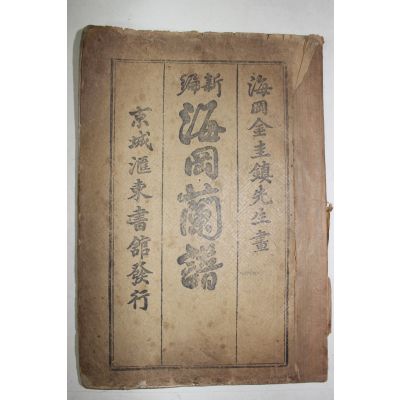 海岡金圭鎭先生畫
新編
海岡蘭譜
京城滙東書館發行